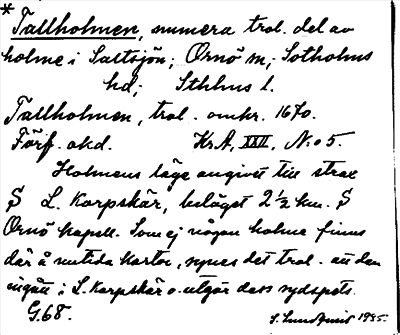 * Tallholmen, numera trol. del av
holme i Saltsjön; Ornö sn; Sotholms
hd; Sthlms l.
Tallholmen, trol. omkr. 1670.
Förf. okd. Kr.A, XXII, N:o 5.
Holmens läge angivet till strax
S L. Karpskär, beläget 2 ½ km. S
Ornö kapell. Som ej någon holme finns
där å nutida kartor, synes det trol. att den
ingått i L. Karpskär o. utgör dess sydspets.
G.68. S. Lundqvist 1935.